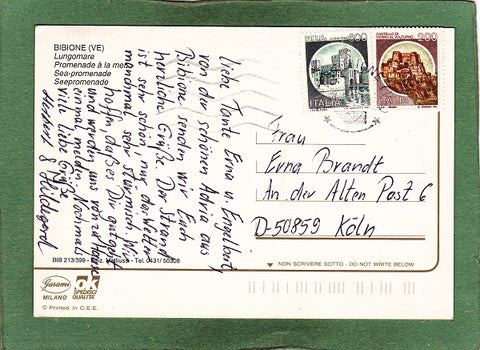 BIBIONE (VE)
Lungomare
Promenade à la mer
Sea-promenade
Seepromenade
liebe Tante Erna u. Engelbert,
von der schönen Adria aus
Bibione senden wir Euch
herzliche Grüße. Der Strand
ist sehr schön, nur das Wetter
manchmal sehr stürmisch. Wir
hoffen, daß es Dir gut geht
und werden uns von zu Hause
einmal melden. Nochmals
viele liebe Grüße
Herbert & Hildegard
ITALIA
CASTELLO DI
CERRO AL VOLTURNO
200
ITALIA
Frau
Erna Brandt
An der Alten Post 6
D-50859 Köln
BIB 213/399 - Tel. 0431/50308
NON SCRIVERE SOTTO - DO NOT WRITE BELOW
Garami
MILANO
OK
SPEDISCI
QUALITÀ
© Printed in C.E.E.